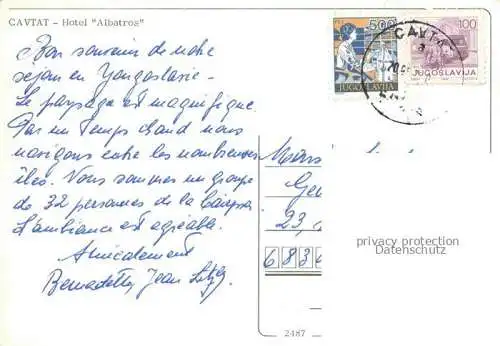 CAVTAT - Hotel "Albatros"
Bon souvenir de notre
séjour en Yougoslavie -
Le paysage est magnifique
Par un temps chaud nous
navigons entre les nombreuses
îles. Nous sommes un groupe
de 32 personnes de la
L'ambiance est agréable.
Amicalement
Bernadette, Jean
500
JUGOSLAVIJA
100
JUGOSLAVIJA
CAVTAT
23,
6 8 3
privacy protection
Datenschutz
2487